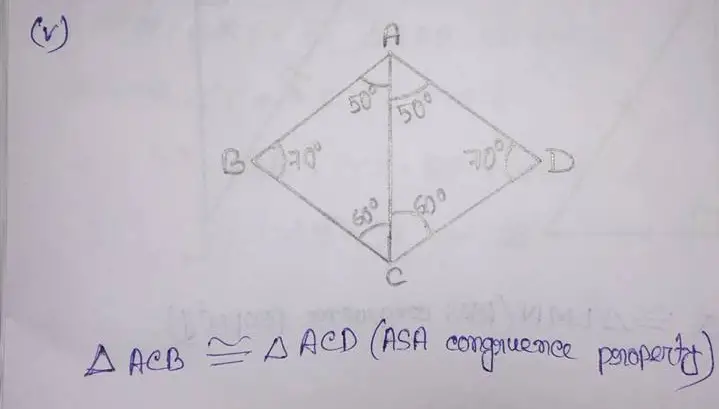 (v)
A
50° 50°
B 70° 70° D
60° 60°
C
△ ACB ≅ △ ACD (ASA congruence property)